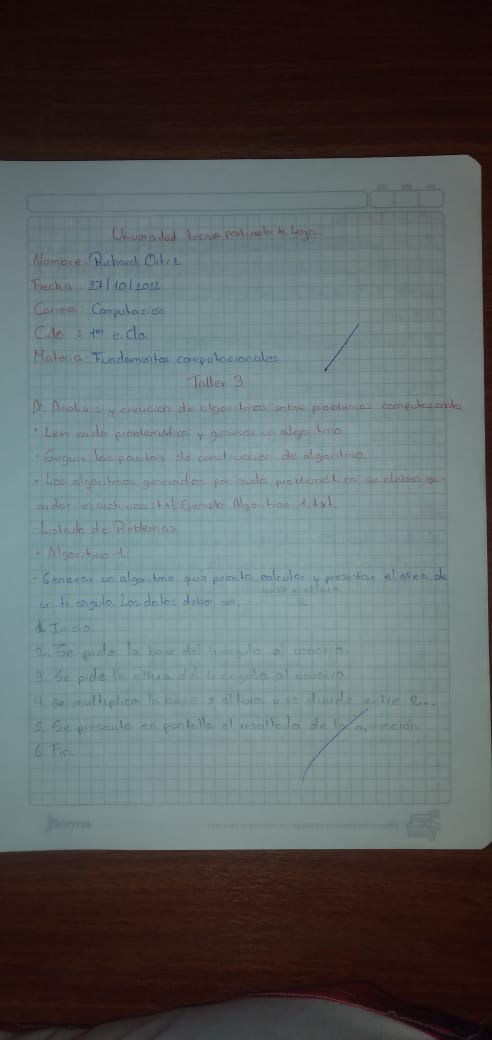 Universidad tecnica particular de Loja
Nombre: Richard Ortiz
Fecha: 27/10/2022
Carrera: Computación
Ciclo: 1er ciclo
Materia: Fundamentos computacionales
Taller 3
Analisis y creación de algoritmos sobre problemas computacionales
• Leer cada problemática y generar un algoritmo.
• Seguir las pautas de construcción de algoritmo.
• Los algoritmos generados por cada problemática se deben gu-
ardar en archivos txt Ejemplo Algoritmo 1.txt.
Listado de Problemas
• Algoritmo 1
• Generar un algoritmo que permita calcular y presentar el area de
un triangulo. Los datos deben ser.
base x altura
2
1. Inicio
2. Se pide la base del triangulo al usuario.
3. Se pide la altura del triangulo al usuario.
4. se multiplica la base x altura y se divide entre 2..
5. Se presenta en pantalla el resultado de la operación
6. Fin
Norma